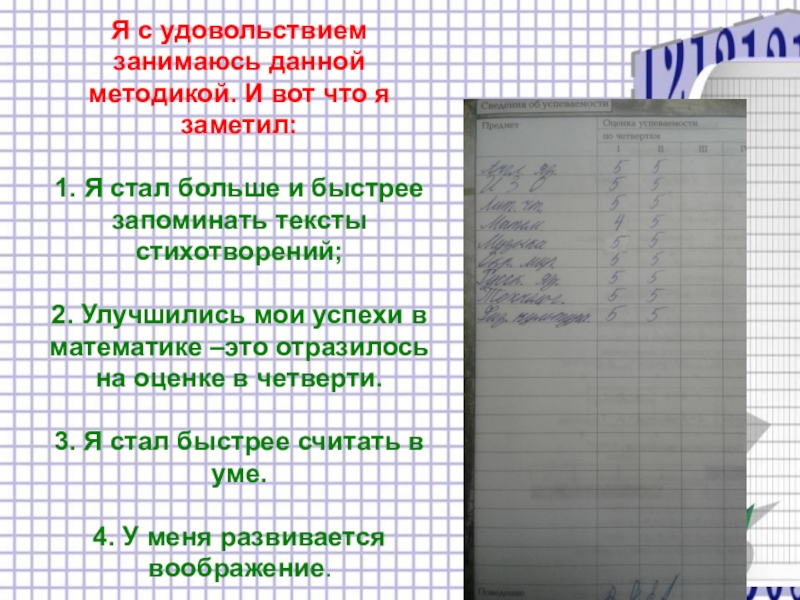 Я с удовольствием
занимаюсь данной
методикой. И вот что я
заметил:
1. Я стал больше и быстрее
запоминать тексты
стихотворений;
2. Улучшились мои успехи в
математике –это отразилось
на оценке в четверти.
3. Я стал быстрее считать в
уме.
4. У меня развивается
воображение.
1210101
Сведения об успеваемости
Предмет Оценка успеваемости
по четвертям
I II III
Англ. яз. 5 5
ИЗО 5 5
Лит. чт. 5 5
Матем 4 5
Музыка 5 5
Окр. мир. 5 5
Русск. яз. 5 5
Технолог. 5 5
Физ. культура. 5 5
Поведение